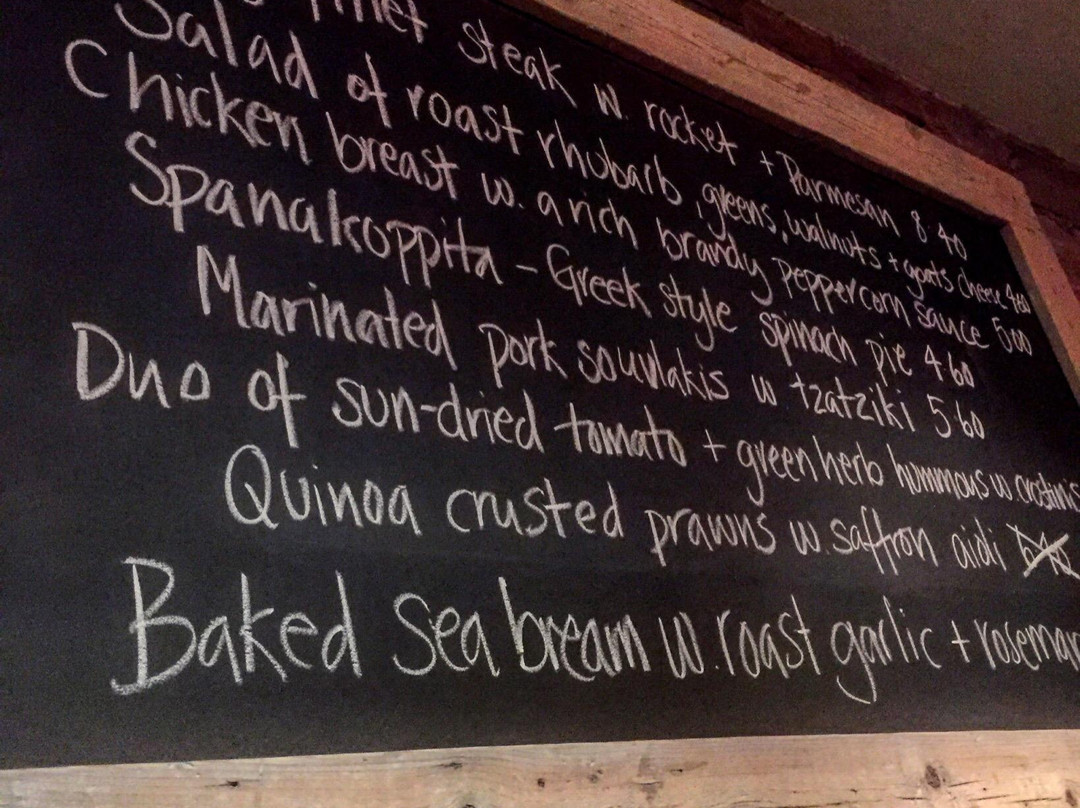 steak w. rocket + Parmesan 8.40
Salad of roast rhubarb, greens, walnuts + goats cheese 4.60
Chicken breast w. a rich brandy peppercorn sauce 5.00
Spanakoppita - Greek style spinach pie 4.60
Marinated pork souvlakis w tzatziki 5.60
Duo of sun-dried tomato + green herb hummous w. crostinis
Quinoa crusted prawns w. saffron aioli
Baked Sea bream w. roast garlic + rosemar